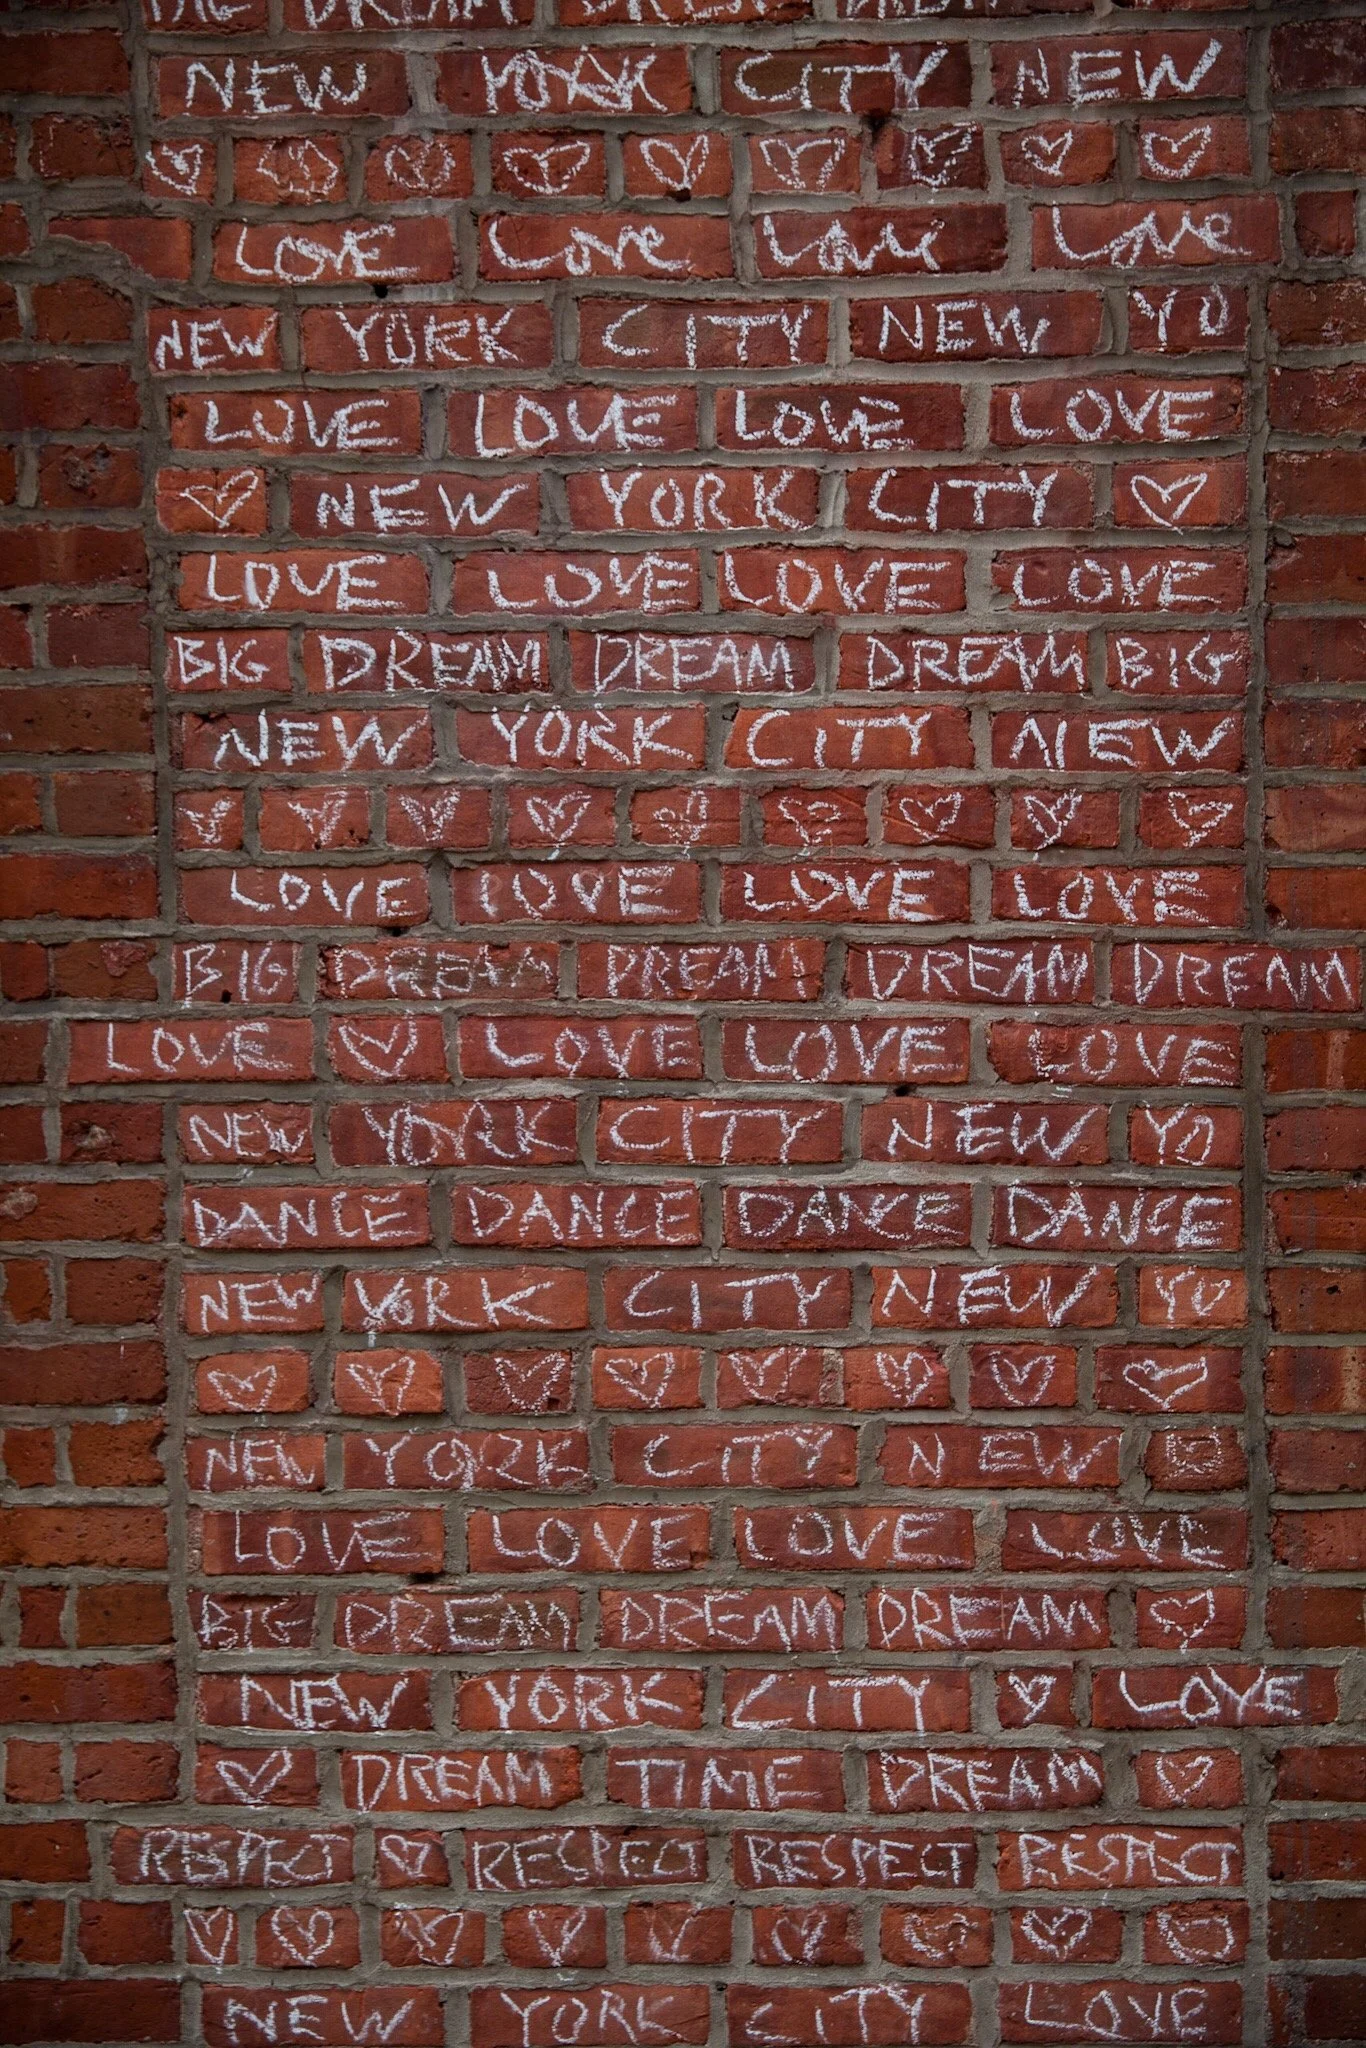 BIG DREAM DREAM DREAM
NEW YORK CITY NEW
LOVE Love Love Love
NEW YORK CITY NEW YO
LOVE LOVE LOVE LOVE
NEW YORK CITY
LOVE LOVE LOVE LOVE
BIG DREAM DREAM DREAM BIG
NEW YORK CITY NEW
LOVE LOVE LOVE LOVE
BIG DREAM DREAM DREAM DREAM
LOVE LOVE LOVE LOVE
NEW YORK CITY NEW YO
DANCE DANCE DANCE DANCE
NEW YORK CITY NEW YO
NEW YORK CITY NEW
LOVE LOVE LOVE LOVE
BIG DREAM DREAM DREAM
NEW YORK CITY LOVE
DREAM TIME DREAM
RESPECT RESPECT RESPECT RESPECT
NEW YORK CITY LOVE